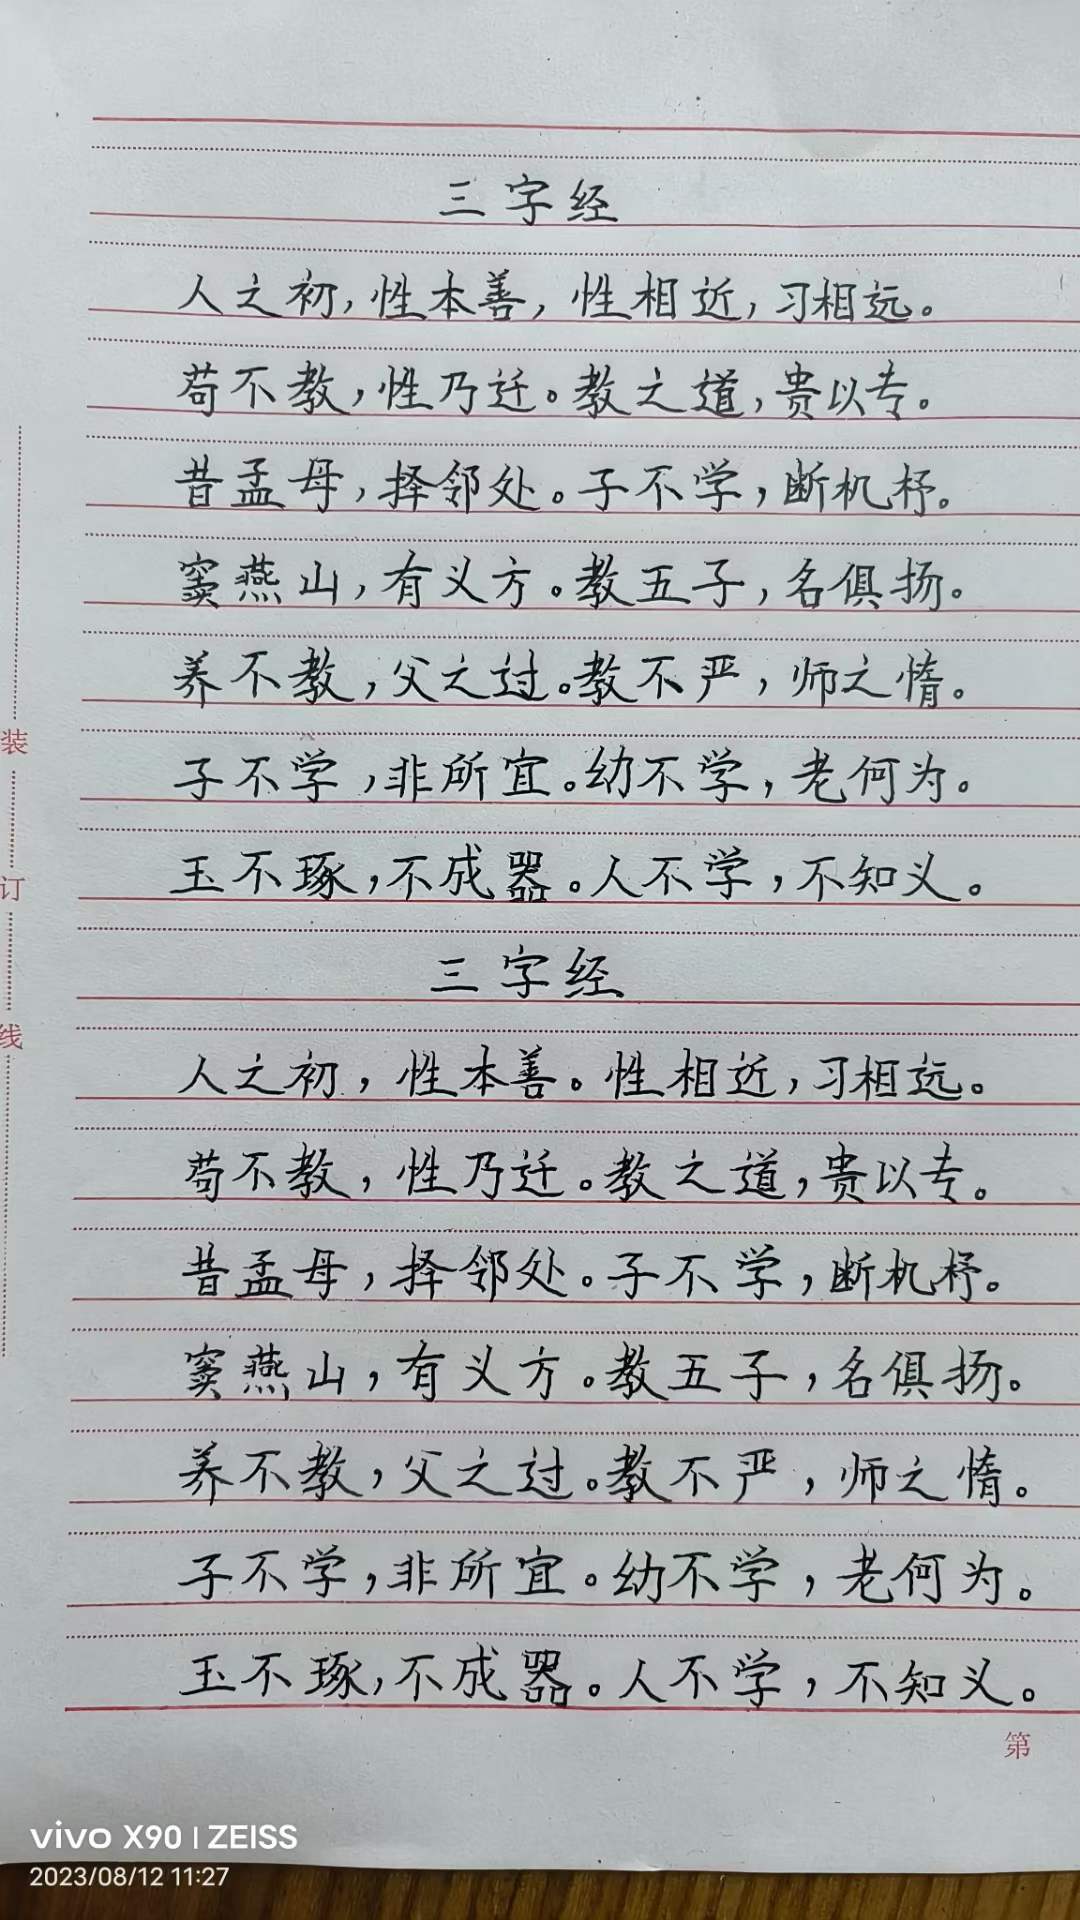 三字经
人之初,性本善,性相近,习相远。
苟不教,性乃迁。教之道,贵以专。
昔孟母,择邻处。子不学,断机杼。
窦燕山,有义方。教五子,名俱扬。
养不教,父之过。教不严,师之惰。
子不学,非所宜。幼不学,老何为。
玉不琢,不成器。人不学,不知义。
三字经
人之初,性本善。性相近,习相远。
苟不教,性乃迁。教之道,贵以专。
昔孟母,择邻处。子不学,断机杼。
窦燕山,有义方。教五子,名俱扬。
养不教,父之过。教不严,师之惰。
子不学,非所宜。幼不学,老何为。
玉不琢,不成器。人不学,不知义。
装
订
线
第
vivo X90 | ZEISS
2023/08/12 11:27